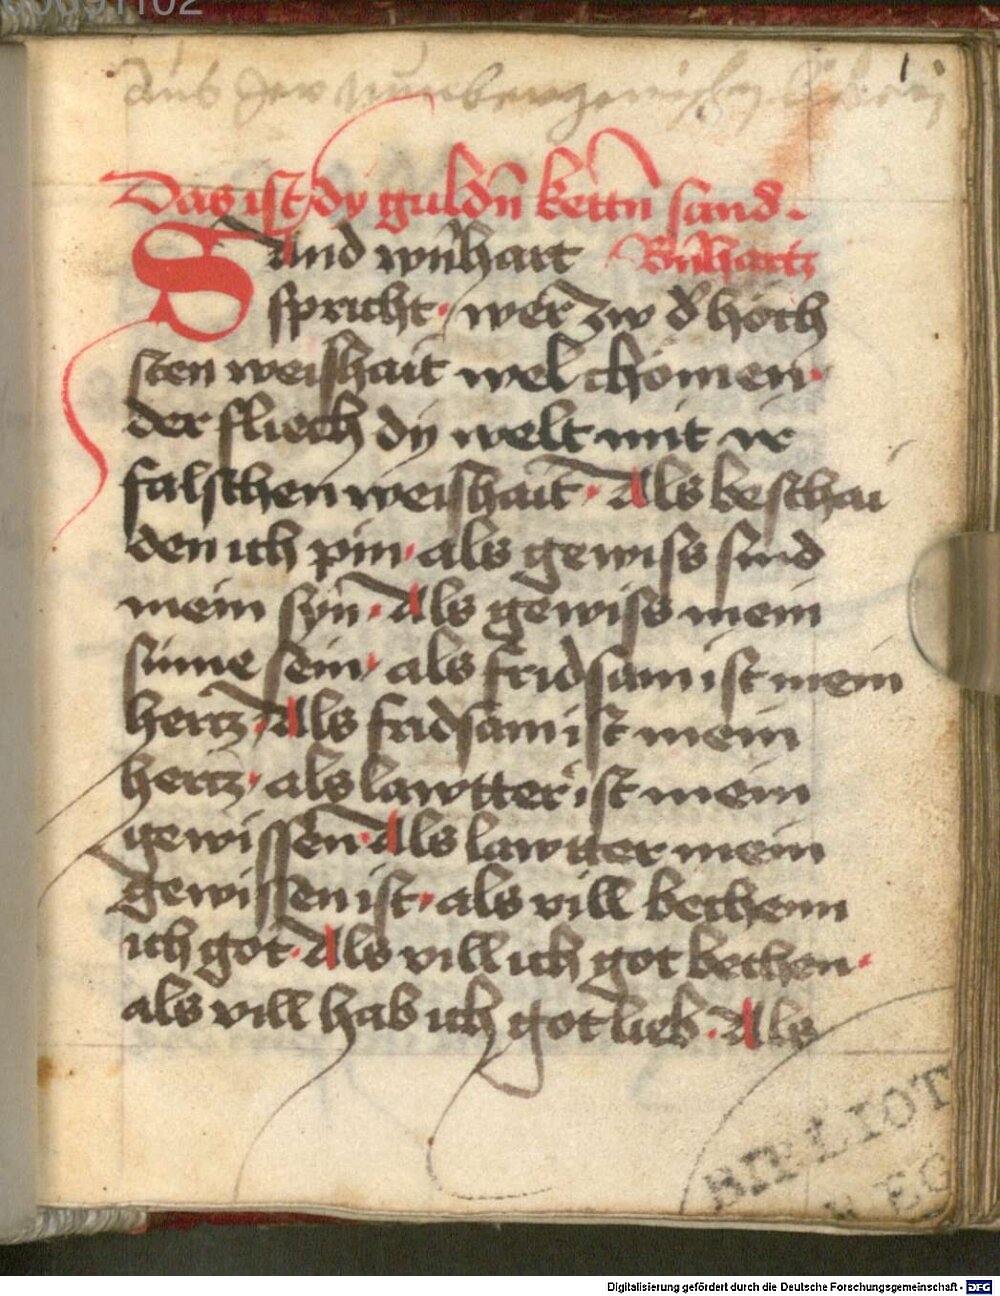 00091102
Aus der Nurnbergerischen
1.
Das ist dy guldn̄ kettn̄ sand
Bn̄hartz
Sand wn̄hart
spricht · wer zw d' höch
sten weishait wel chömen ·
der fliech dÿ welt mit ir
falschen weishait · Als beschai
den ich pin · als gewiss sind
mein syn̄ · Als gewiss mein
sinne sein · als fridsam ist mein
hertz · Als fridsam ist mein
hertz · als lawtter ist mein
gewissen · Als lawtter mein
gewissen ist · als vill bechenn
ich got · Als vill ich got bechen ·
als vill hab ich got lieb · Als
BIBLIOT
REG
Digitalisierung gefördert durch die Deutsche Forschungsgemeinschaft - DFG